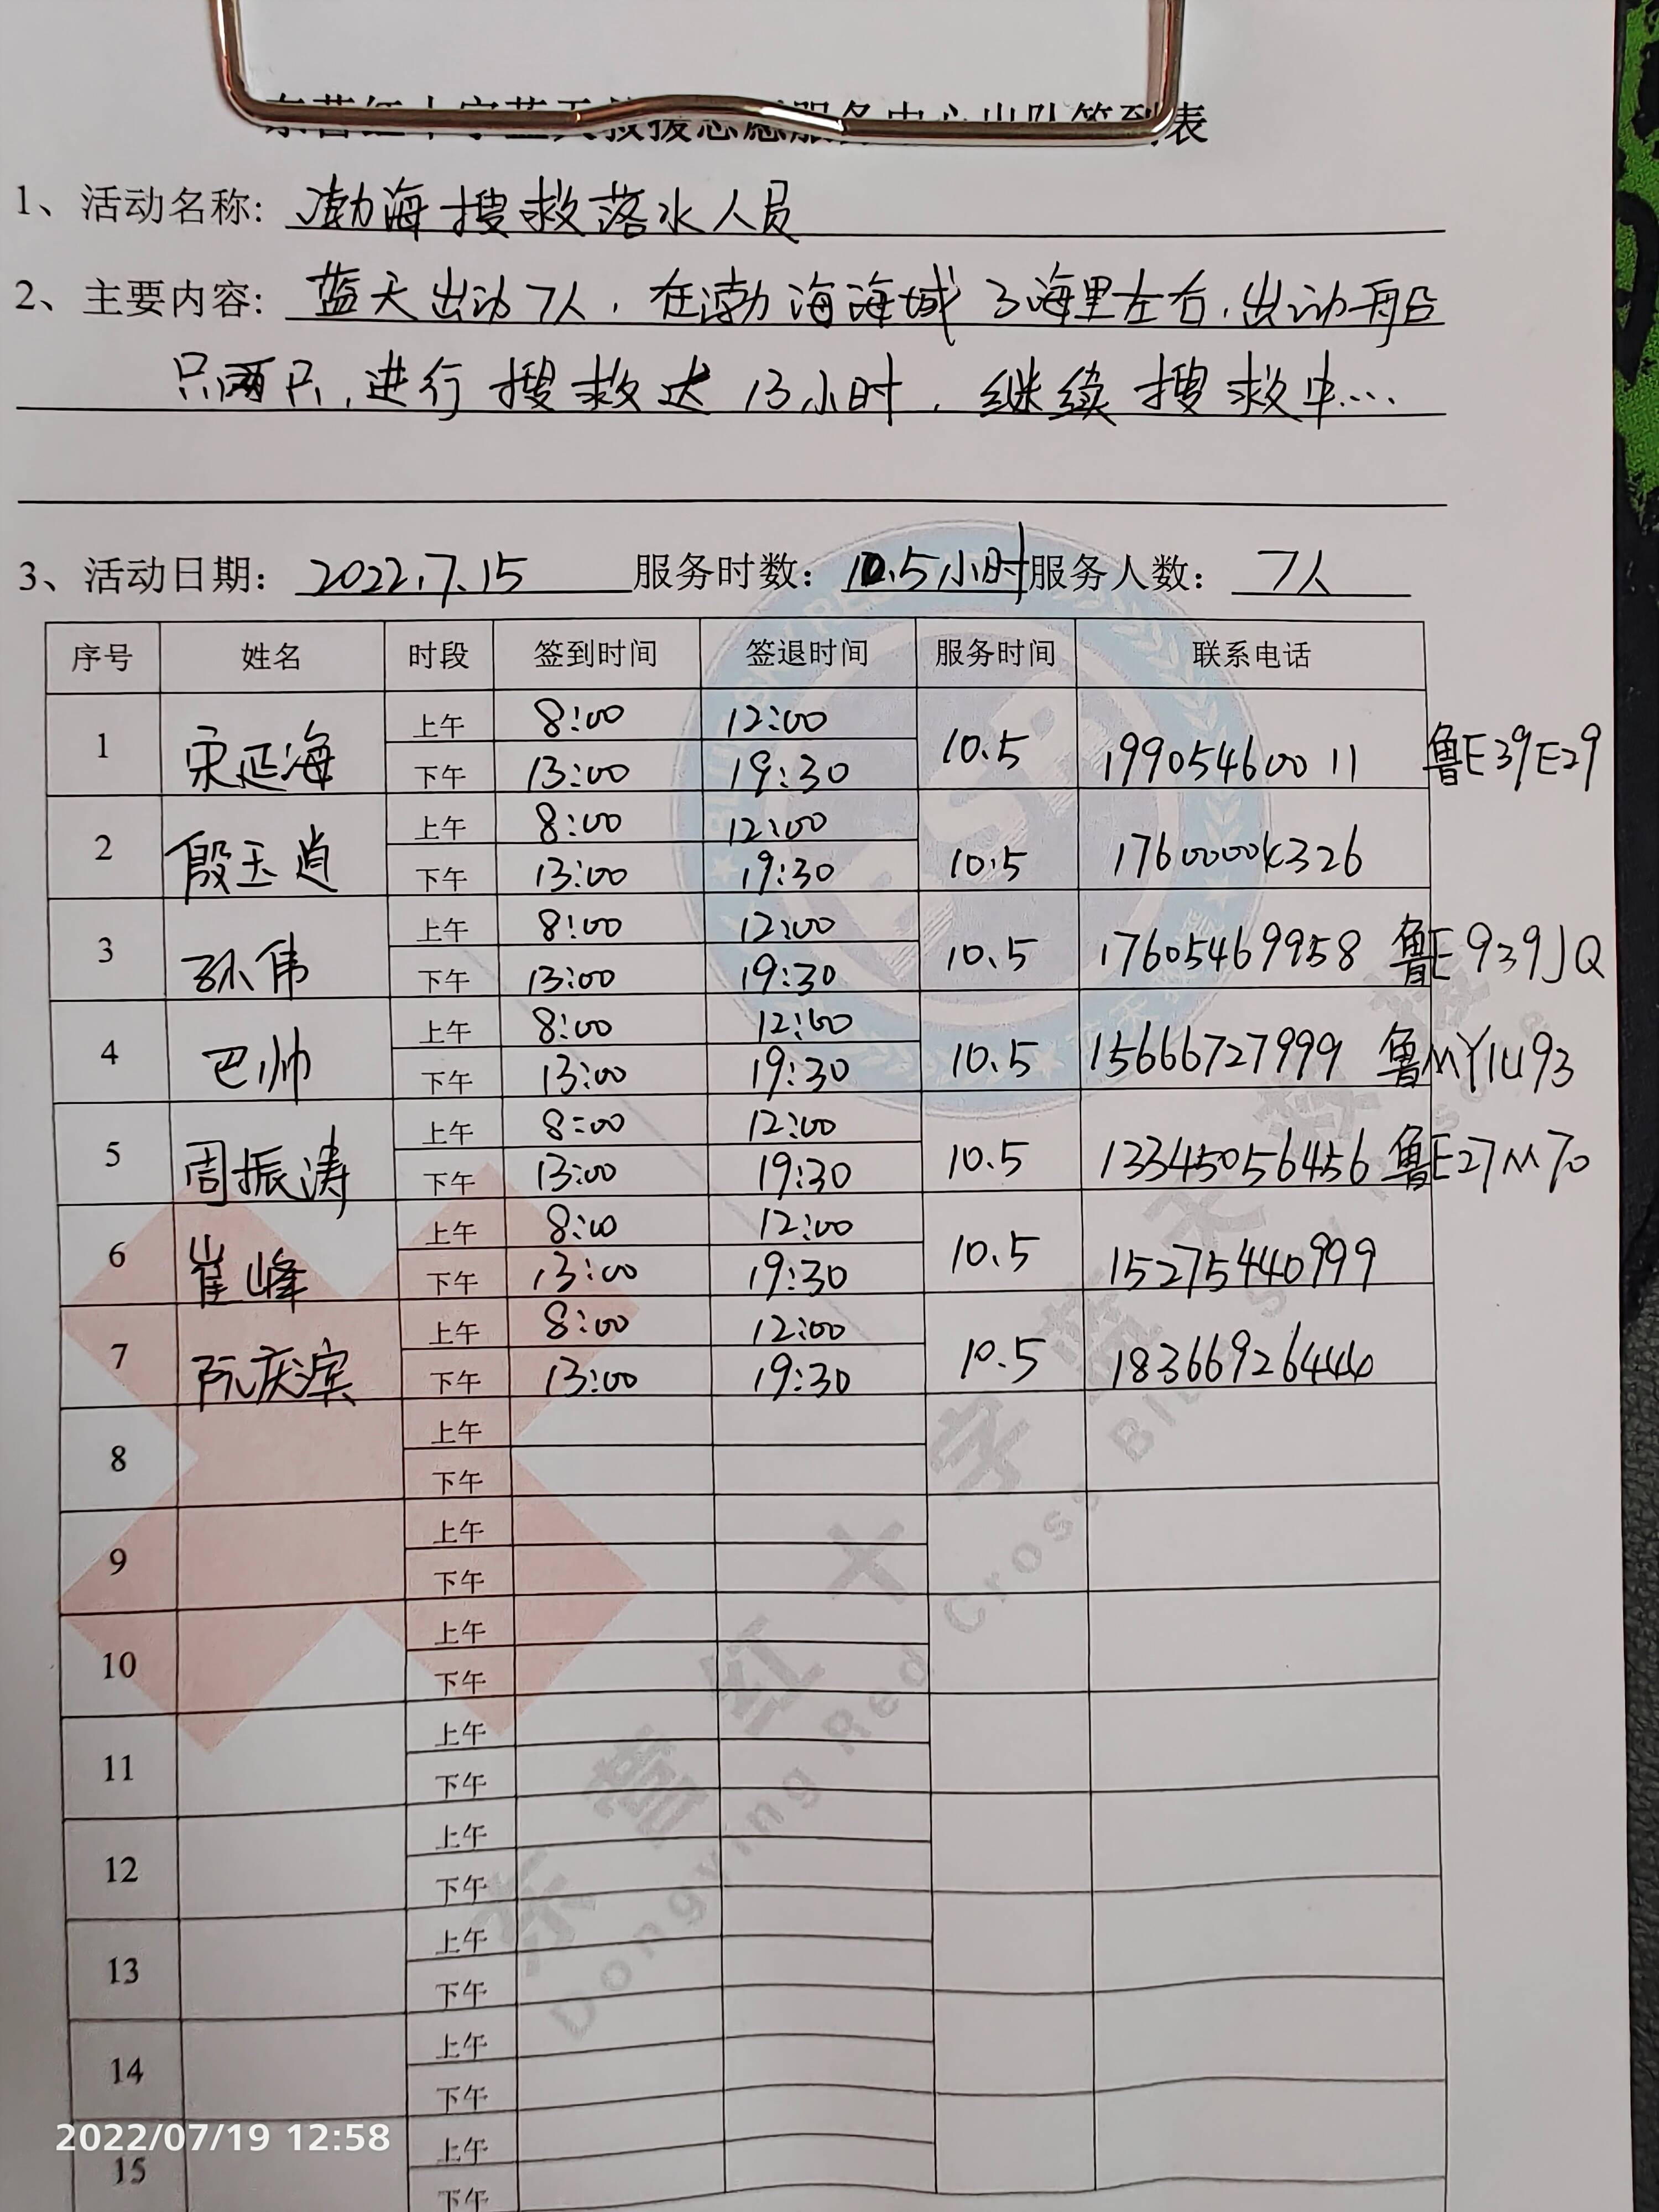 东营红十字蓝天救援志愿服务中心出队签到表
1、活动名称: 渤海搜救落水人员
2、主要内容: 蓝天出动7人，在渤海海域3海里左右，出动船
只两只，进行搜救达13小时，继续搜救中…
3、活动日期: 2022.7.15 服务时数: 10.5小时 服务人数: 7人
序号 姓名 时段 签到时间 签退时间 服务时间 联系电话
1 宋延海 上午 8:00 12:00 10.5 19905460011 鲁E39E29
下午 13:00 19:30
2 殷玉 上午 8:00 12:00 10.5
下午 13:00 19:30
3 孙伟 上午 8:00 12:00 10.5 17605469958 鲁E939JQ
下午 13:00 19:30
4 巴帅 上午 8:00 12:00 10.5 15666727999 鲁MY1U93
下午 13:00 19:30
5 周振涛 上午 8:00 12:00 10.5 13345056456 鲁E27M70
下午 13:00 19:30
6 崔峰 上午 8:00 12:00 10.5 15275440999
下午 13:00 19:30
7 阮庆滨 上午 8:00 12:00 10.5 18366926446
下午 13:00 19:30
8 上午
下午
9 上午
下午
10 上午
下午
11 上午
下午
12 上午
下午
13 上午
下午
14 上午
下午
15 上午
下午
东营红十字蓝天救援
Dongying Red Cross Blue Sky Rescue
2022/07/19 12:58